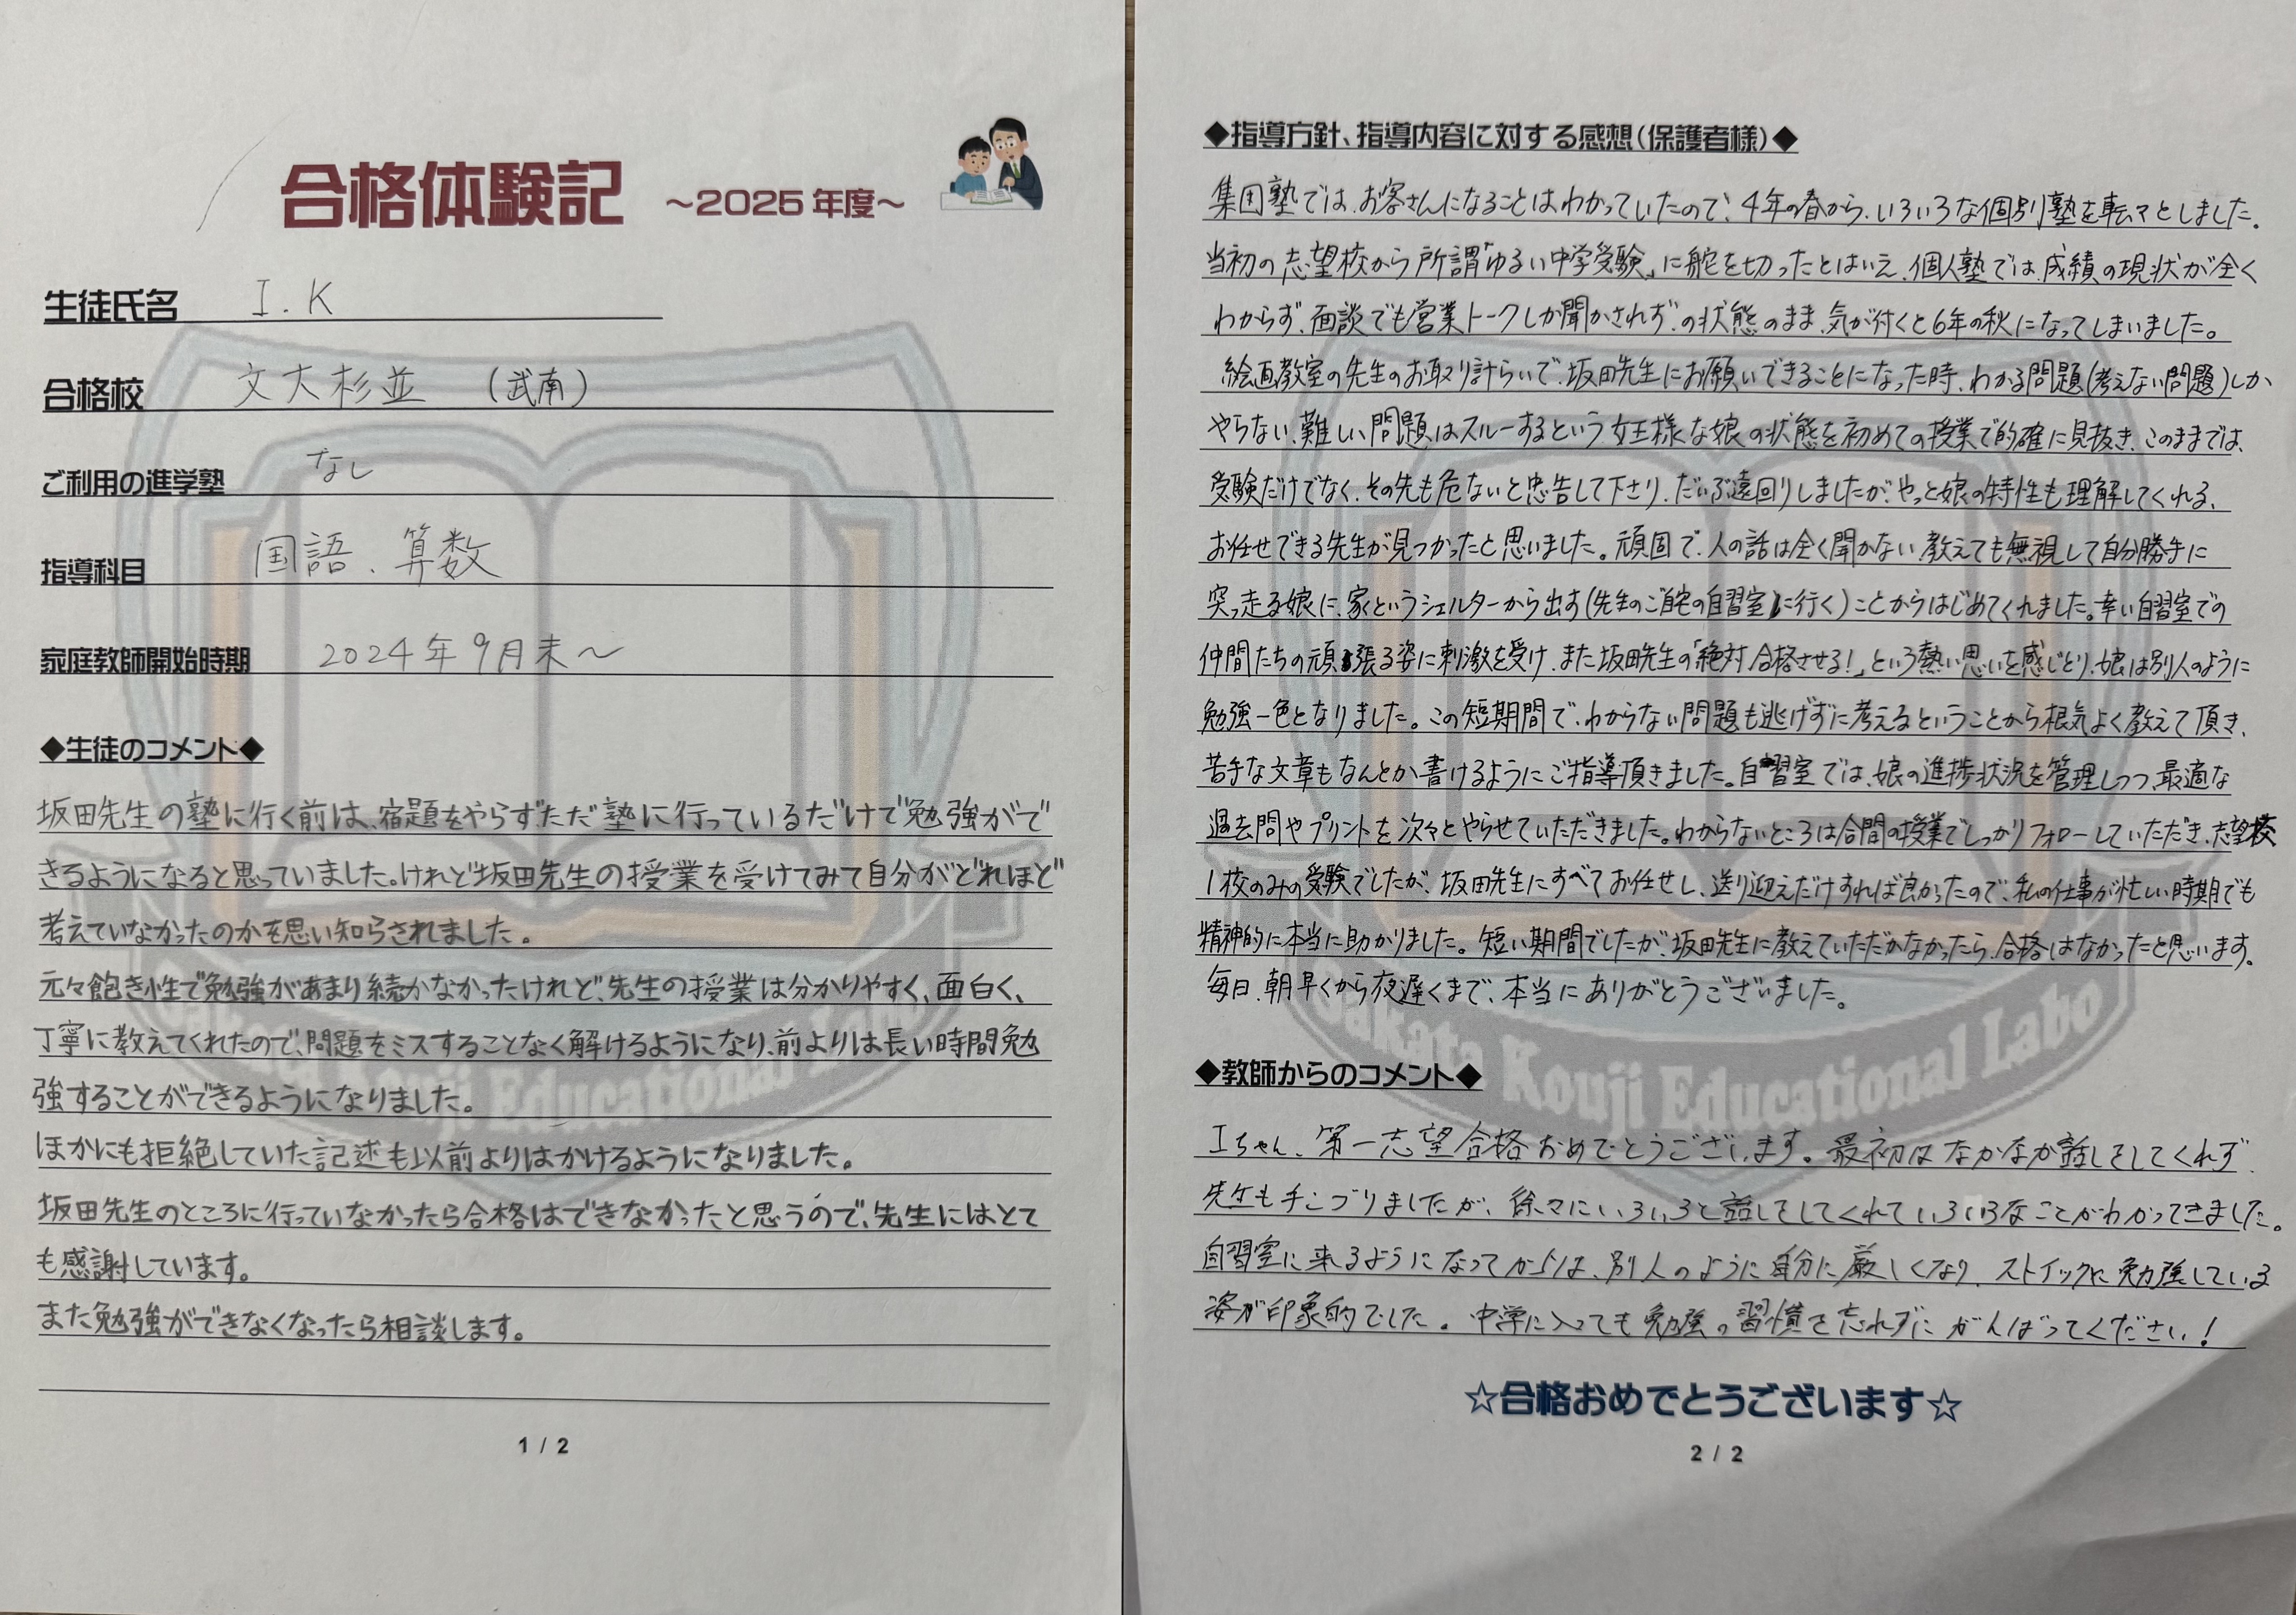 合格体験記 ～2025年度～
生徒氏名 I.K
合格校 文大杉並 (武南)
ご利用の進学塾 なし
指導科目 国語、算数
家庭教師開始時期 2024年9月末～
◆生徒のコメント◆
坂田先生の塾に行く前は、宿題をやらずただ塾に行っているだけで勉強がで
きるようになると思っていました。けれど坂田先生の授業を受けてみて自分がどれほど
考えていなかったのかを思い知らされました。
元々飽き性で勉強があまり続かなかったけれど、先生の授業は分かりやすく、面白く、
丁寧に教えてくれたので、問題をミスすることなく解けるようになり、前よりは長い時間勉
強することができるようになりました。
ほかにも拒絶していた記述も以前よりはかけるようになりました。
坂田先生のところに行っていなかったら合格はできなかったと思うので、先生にはとて
も感謝しています。
また勉強ができなくなったら相談します。
1 / 2
◆指導方針、指導内容に対する感想（保護者様）◆
集団塾では、お客さんになることはわかっていたので、4年の春から、いろいろな個別塾を転々としました。
当初の志望校から所謂「ゆるい中学受験」に舵を切ったとはいえ、個人塾では、成績の現状が全く
わからず、面談でも営業トークしか聞かされず、の状態のまま、気が付くと6年の秋になってしまいました。
絵画教室の先生のお取り計らいで、坂田先生にお願いできることになった時、わかる問題(考えない問題)しか
やらない、難しい問題はスルーするという女王様な娘の状態を初めての授業で的確に見抜き、このままでは、
受験だけでなく、その先も危ないと忠告して下さり、だいぶ遠回りしましたが、やっと娘の特性も理解してくれる、
お任せできる先生が見つかったと思いました。頑固で、人の話は全く聞かない、教えても無視して自分勝手に
突っ走る娘に、家というシェルターから出す(先生のご自宅の自習室に行く)ことからはじめてくれました。幸い自習室での
仲間たちの頑張る姿に刺激を受け、また坂田先生の「絶対合格させる!」という熱い思いを感じとり、娘は別人のように
勉強一色となりました。この短期間で、わからない問題も逃げずに考えるということから根気よく教えて頂き、
苦手な文章もなんとか書けるようにご指導頂きました。自習室では、娘の進捗状況を管理しつつ、最適な
過去問やプリントを次々とやらせていただきました。わからないところは合間の授業でしっかりフォローしていただき、志望校
1校のみの受験でしたが、坂田先生にすべてお任せし、送り迎えだけすれば良かったので、私の仕事が忙しい時期でも
精神的に本当に助かりました。短い期間でしたが、坂田先生に教えていただかなかったら、合格はなかったと思います。
毎日、朝早くから夜遅くまで、本当にありがとうございました。
Sakata Kouji Educational Labo
◆教師からのコメント◆
Iちゃん、第一志望合格おめでとうございます。最初はなかなか話しをしてくれず、
先生も手こづりましたが、徐々にいろいろと話しをしてくれていろいろなことがわかってきました。
自習室に来るようになってからは、別人のように自分に厳しくなり、ストイックに勉強している
姿が印象的でした。中学に入っても勉強の習慣を忘れずにがんばってください!
☆合格おめでとうございます☆
2 / 2